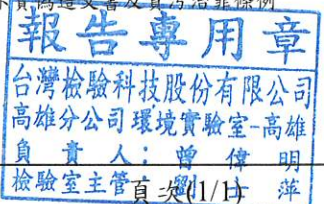 偽造文書及貪污治罪條例
報告專用章
台灣檢驗科技股份有限公司
高雄分公司環境實驗室-高雄
負責人：曾偉明
檢驗室主管：劉 萍
頁次(1/1)